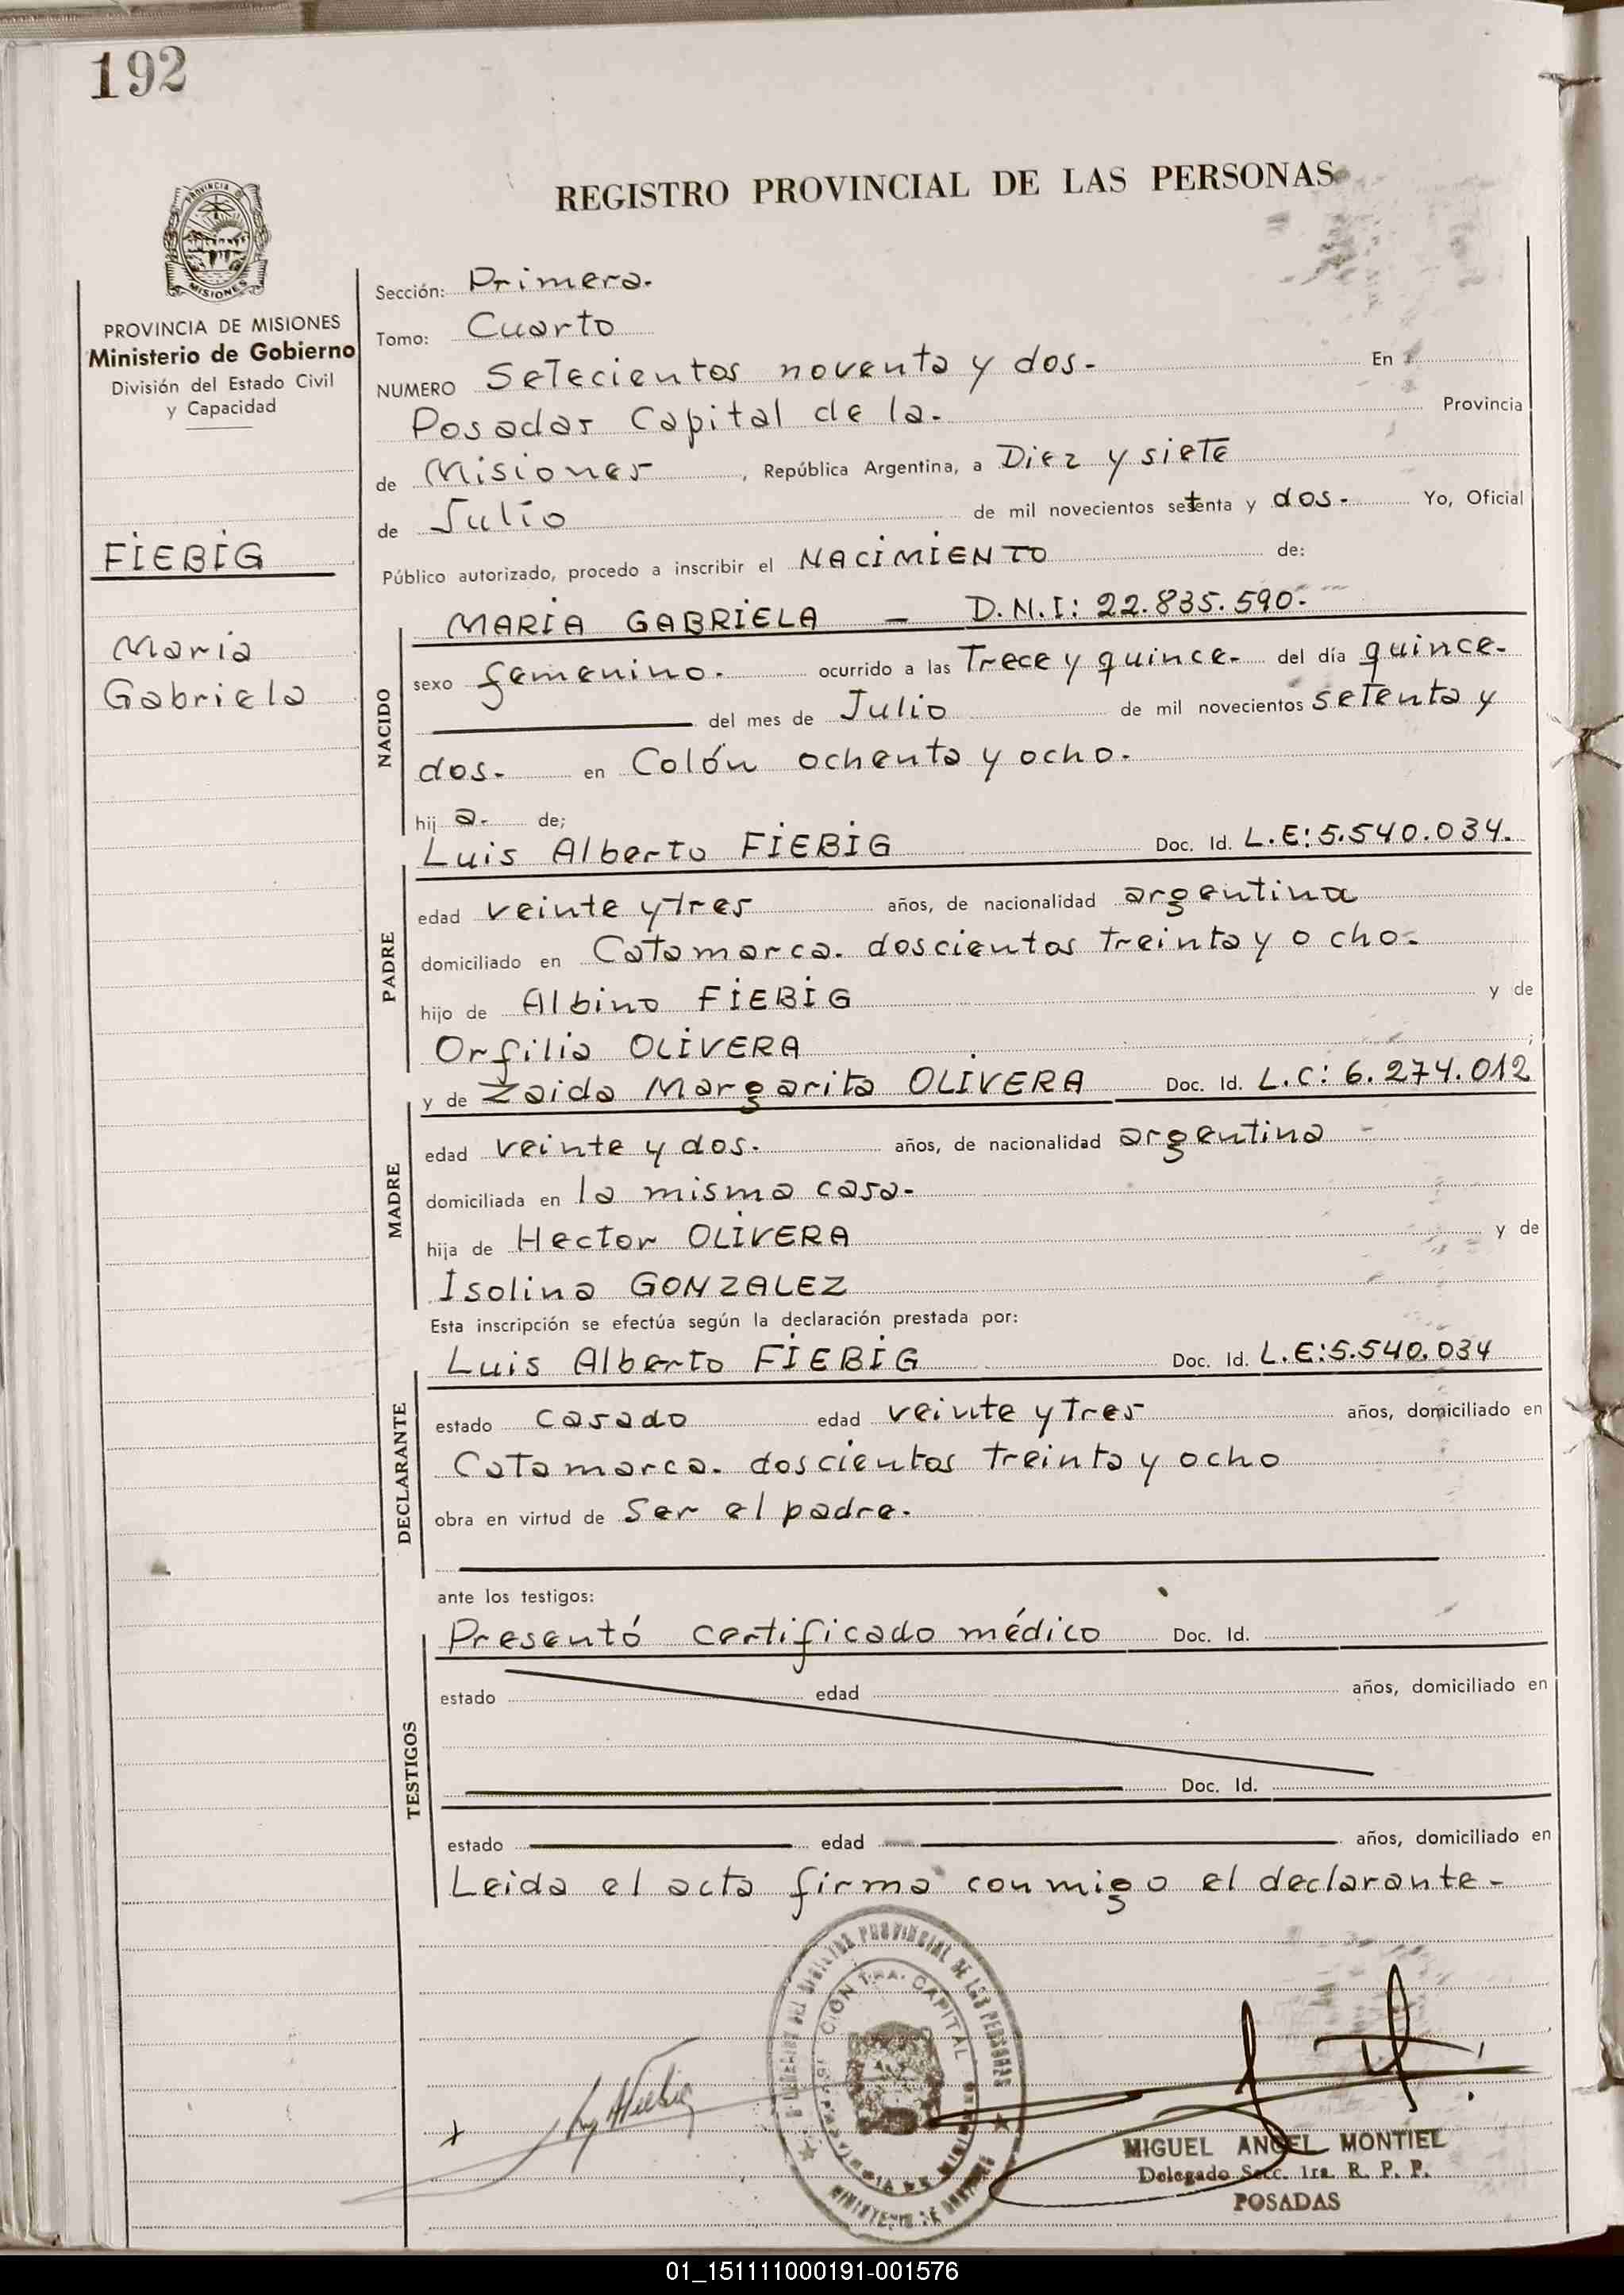 192
REGISTRO PROVINCIAL DE LAS PERSONAS
PROVINCIA
MISIONES
PROVINCIA DE MISIONES
Ministerio de Gobierno
División del Estado Civil
y Capacidad
FIEBIG
Maria
Gabriela
Sección: Primera.
Tomo: Cuarto
NUMERO Setecientos noventa y dos. En
Posadas Capital de la. Provincia
de Misiones, República Argentina, a Diez y siete
de Julio de mil novecientos setenta y dos. Yo, Oficial
Público autorizado, procedo a inscribir el NACIMIENTO de:
NACIDO
MARIA GABRIELA — D.N.I: 22.835.590.
sexo femenino. ocurrido a las Trece y quince. del día quince.
del mes de Julio de mil novecientos setenta y
dos. en Colón ochenta y ocho.
hij a. de;
PADRE
Luis Alberto FIEBIG Doc. Id. L.E: 5.540.034.
edad veinte y tres años, de nacionalidad argentina
domiciliado en Catamarca. doscientos treinta y ocho.
hijo de Albino FIEBIG y de
Orfilia OLIVERA;
MADRE
y de Zaida Margarita OLIVERA Doc. Id. L.C: 6.274.012
edad veinte y dos. años, de nacionalidad argentina -
domiciliada en la misma casa.
hija de Hector OLIVERA y de
Isolina GONZALEZ
Esta inscripción se efectúa según la declaración prestada por:
DECLARANTE
Luis Alberto FIEBIG Doc. Id. L.E: 5.540.034
estado casado edad veinte y tres años, domiciliado en
Catamarca. doscientos treinta y ocho
obra en virtud de Ser el padre.
ante los testigos:
TESTIGOS
Presentó certificado médico Doc. Id.
estado edad años, domiciliado en
Doc. Id.
estado edad años, domiciliado en
Leida el acta firma conmigo el declarante-
REGISTRO PROVINCIAL DE LAS PERSONAS
CAPITAL
MIGUEL ANGEL MONTIEL
Delegado Secc. 1ra. R. P. P.
POSADAS
01_151111000191-001576